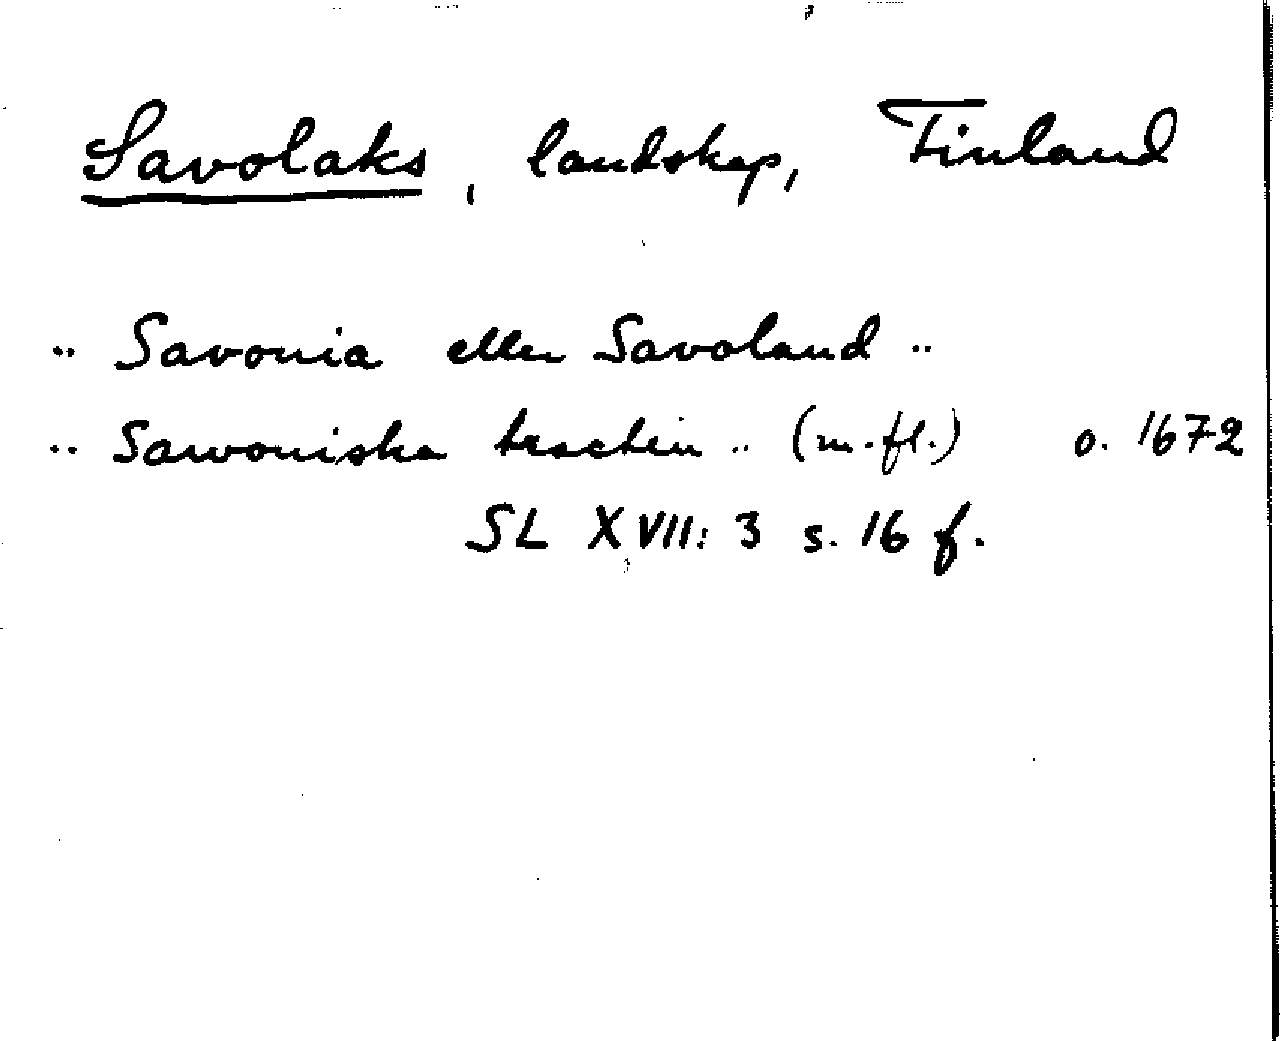 Savolaks, landskap, Finland
.. Savonia eller Savoland ..
.. Sawoniska tracten .. (m.fl.) o. 1672
SL XVII: 3 s. 16 f.